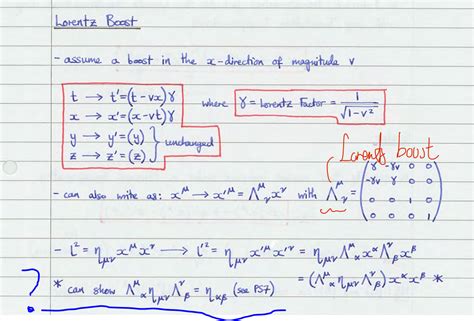 Lorentz Boost
- assume a boost in the x-direction of magnitude v
t → t' = (t - vx)γ
x → x' = (x - vt)γ where γ = Lorentz Factor = 1/√(1-v²)
y → y' = (y)
z → z' = (z) } unchanged
Lorentz boost
- can also write as: x^μ → x'^μ = Λ^μ_ν x^ν with Λ^μ_ν = (γ -γv 0 0
-γv γ 0 0
0 0 1 0
0 0 0 1)
- L² = η_μν x^μ x^ν → L'² = η_μν x'^μ x'^ν = η_μν Λ^μ_α x^α Λ^ν_β x^β
= (Λ^μ_α η_μν Λ^ν_β) x^α x^β *
? * can show Λ^μ_α η_μν Λ^ν_β = η_αβ (see PS7)